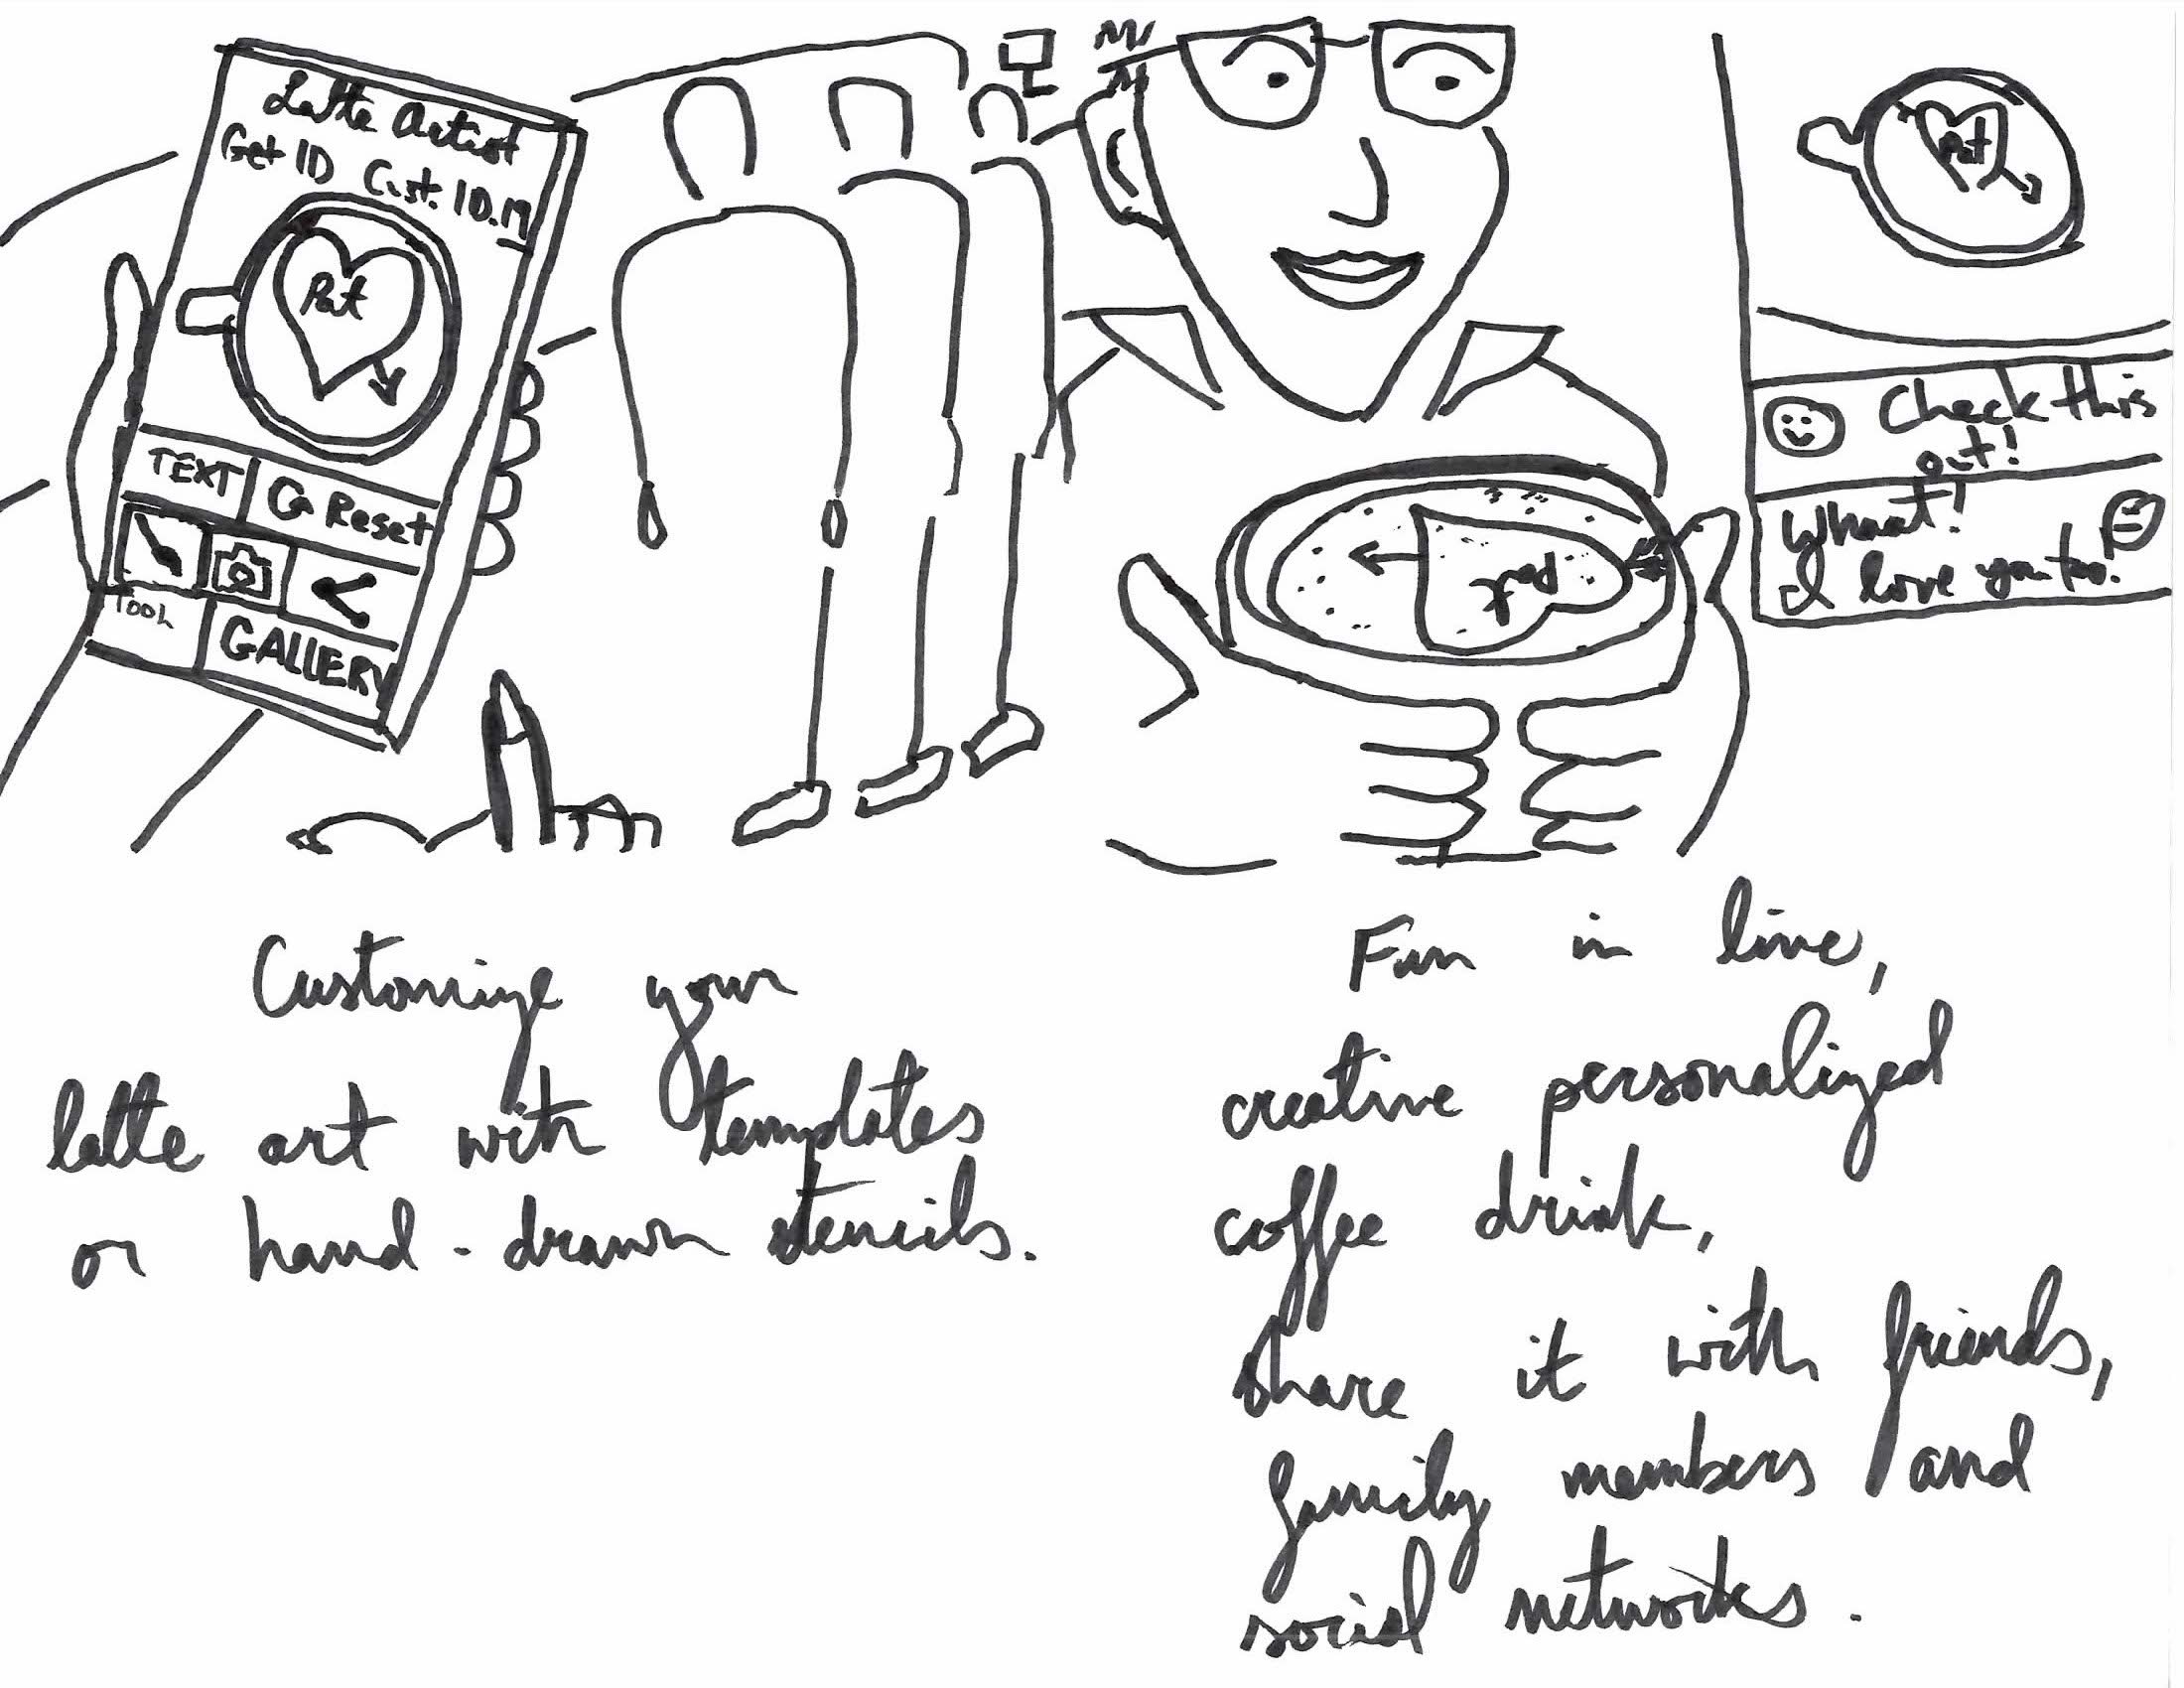 Latte Artist
Get ID Cust. ID. 19
Pat
TEXT
Reset
Tools
GALLERY
Pat
Pat
Check this
out!
Whaat!
I love you too.
Customize your
latte art with templates
or hand-drawn stencils.
Fun in line,
creative personalized
coffee drink,
share it with friends,
family members and
social networks.